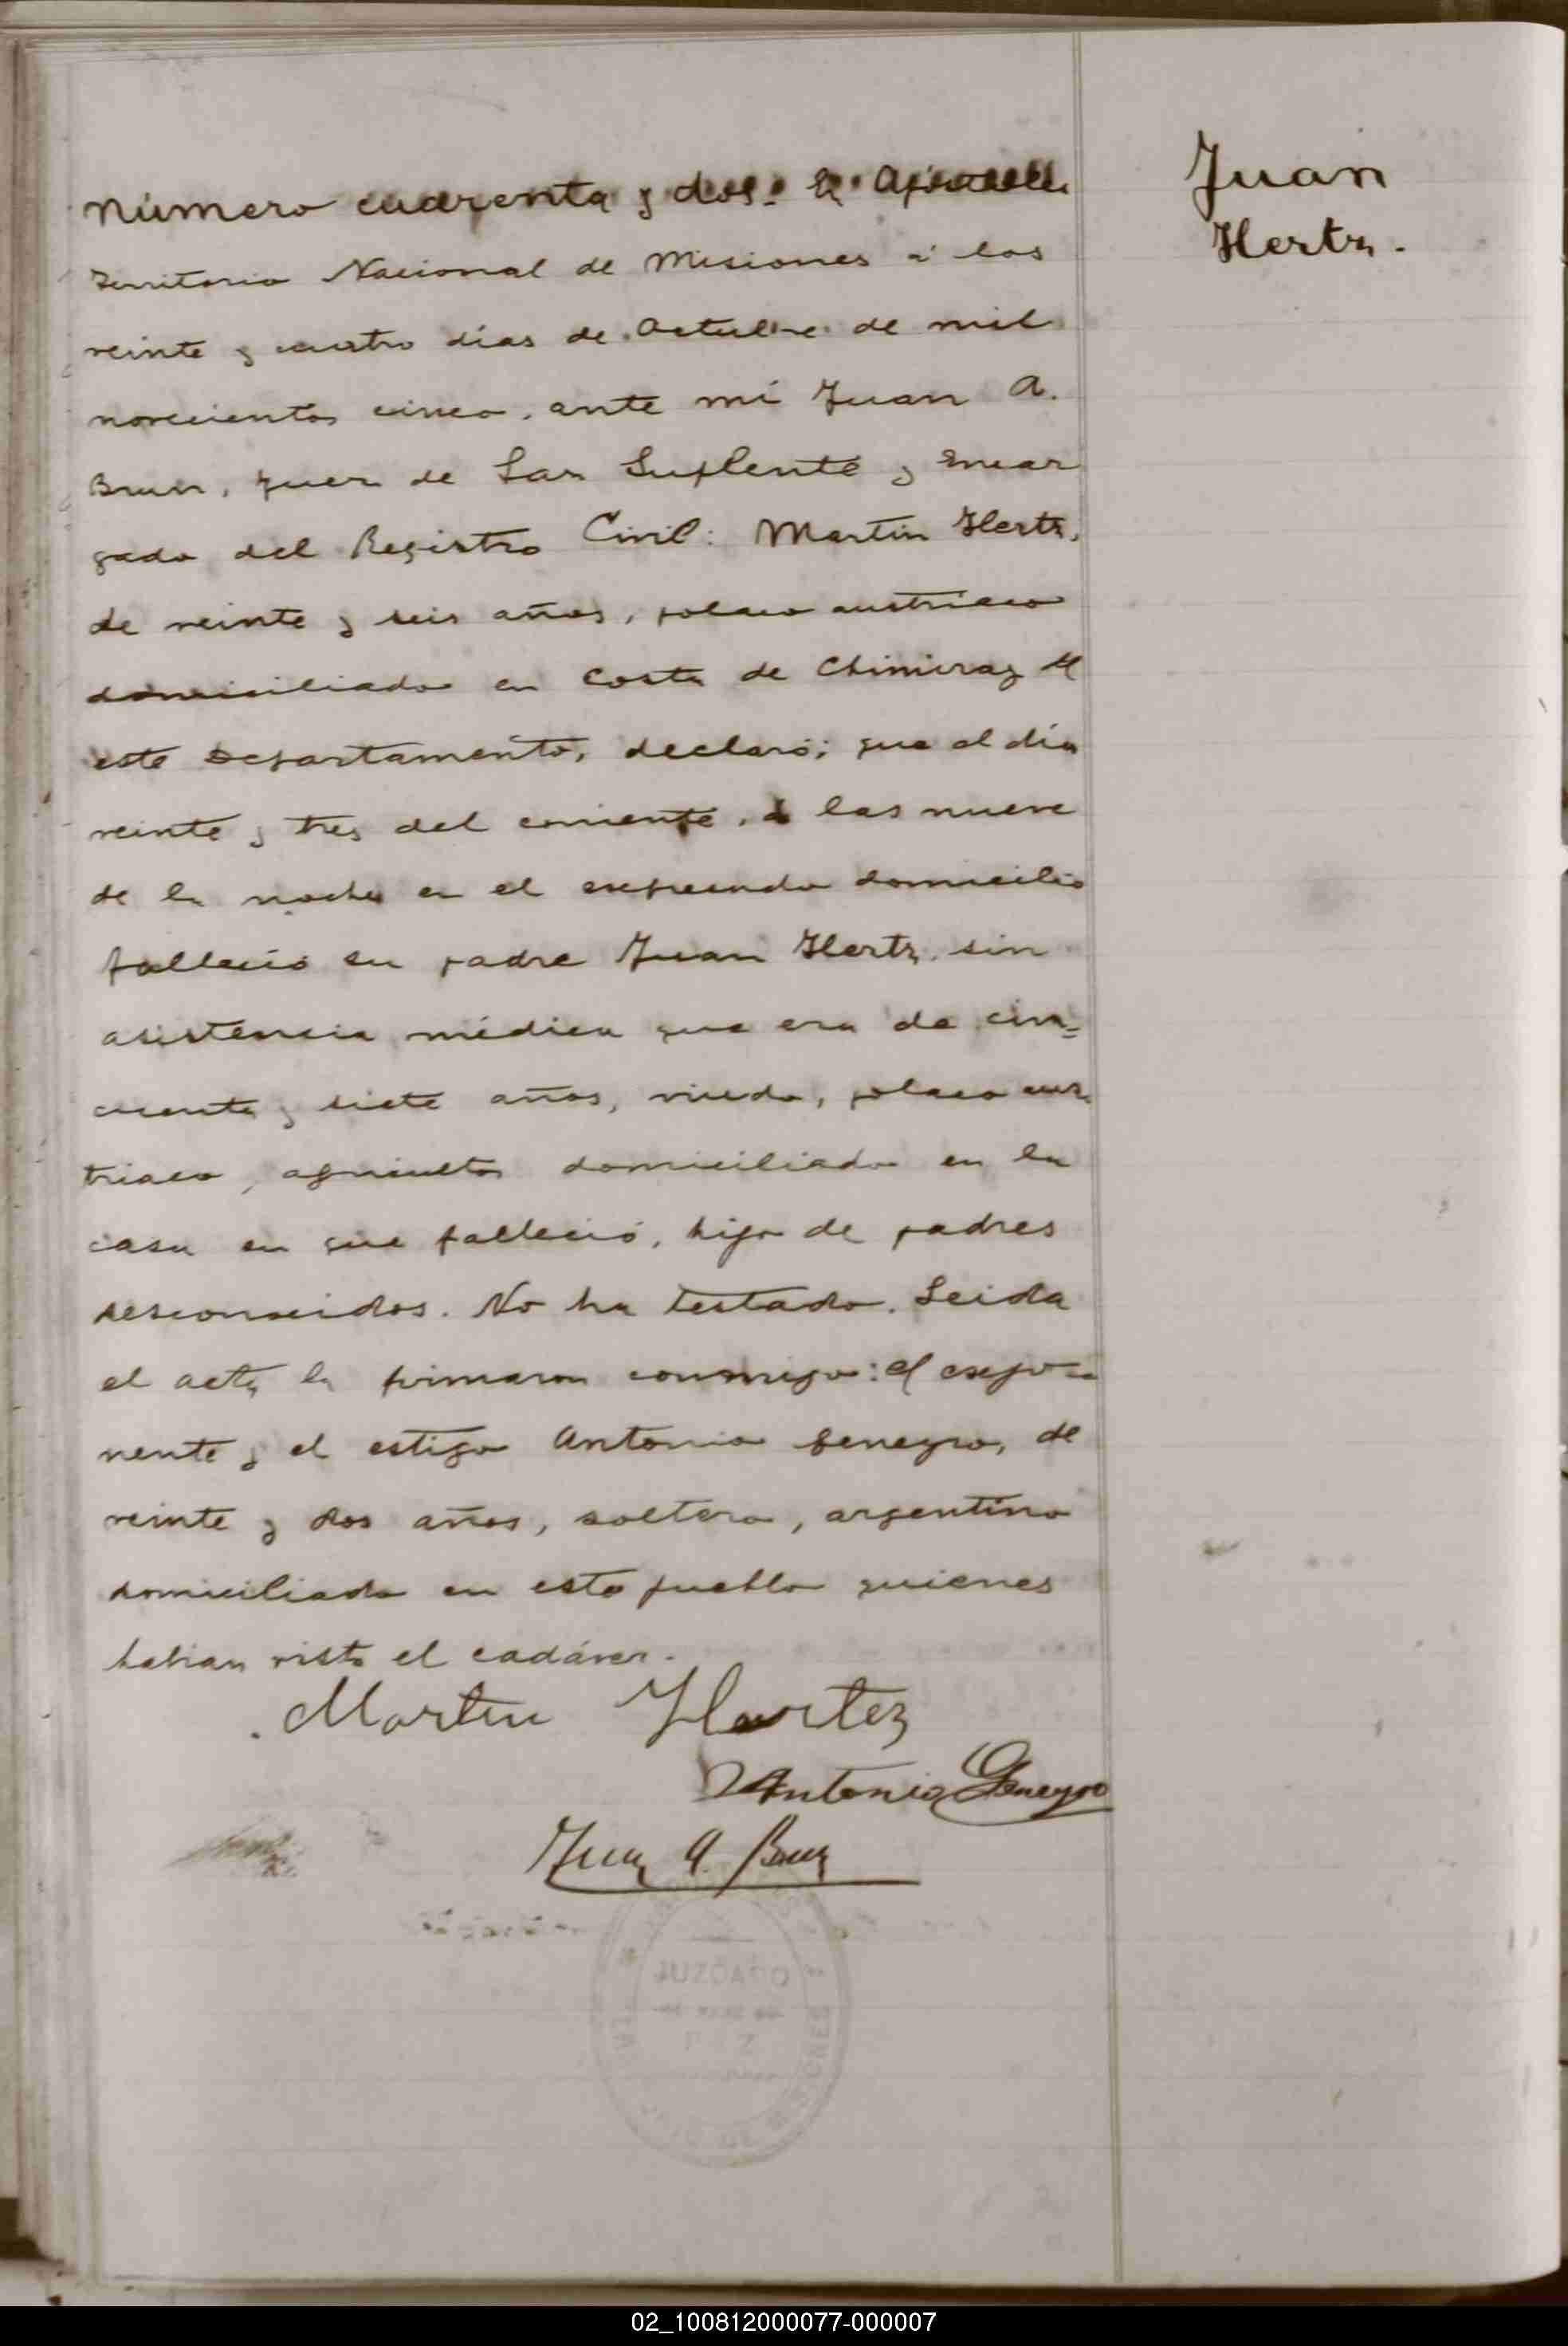 Juan
Hertz.
Número cuarenta y dos. En Apóstoles
Territorio Nacional de Misiones á los
veinte y cuatro días de Octubre de mil
novecientos cinco, ante mí Juan A.
Brun, Juez de Paz Suplente y Encar
gado del Registro Civil: Martin Hertz,
de veinte y seis años, polaco austriaco
domiciliado en Costa de Chimiray de
este Departamento, declaró; que el día
veinte y tres del corriente, á las nueve
de la noche en el expresado domicilio
falleció su padre Juan Hertz, sin
asistencia médica que era de cin=
cuenta y siete años, viudo, polaco aus
triaco, agricultor domiciliado en la
casa en que falleció, hijo de padres
desconocidos. No ha testado. Leida
el acta la firmaron conmigo: el expo=
nente y el estigo Antonio Geneyro, de
veinte y dos años, soltero, argentino
domiciliado en este pueblo quienes
habian visto el cadáver.
Martin Hertez
Antonio Geneyro
Juan A. Brun
JUZGADO
02_100812000077-000007